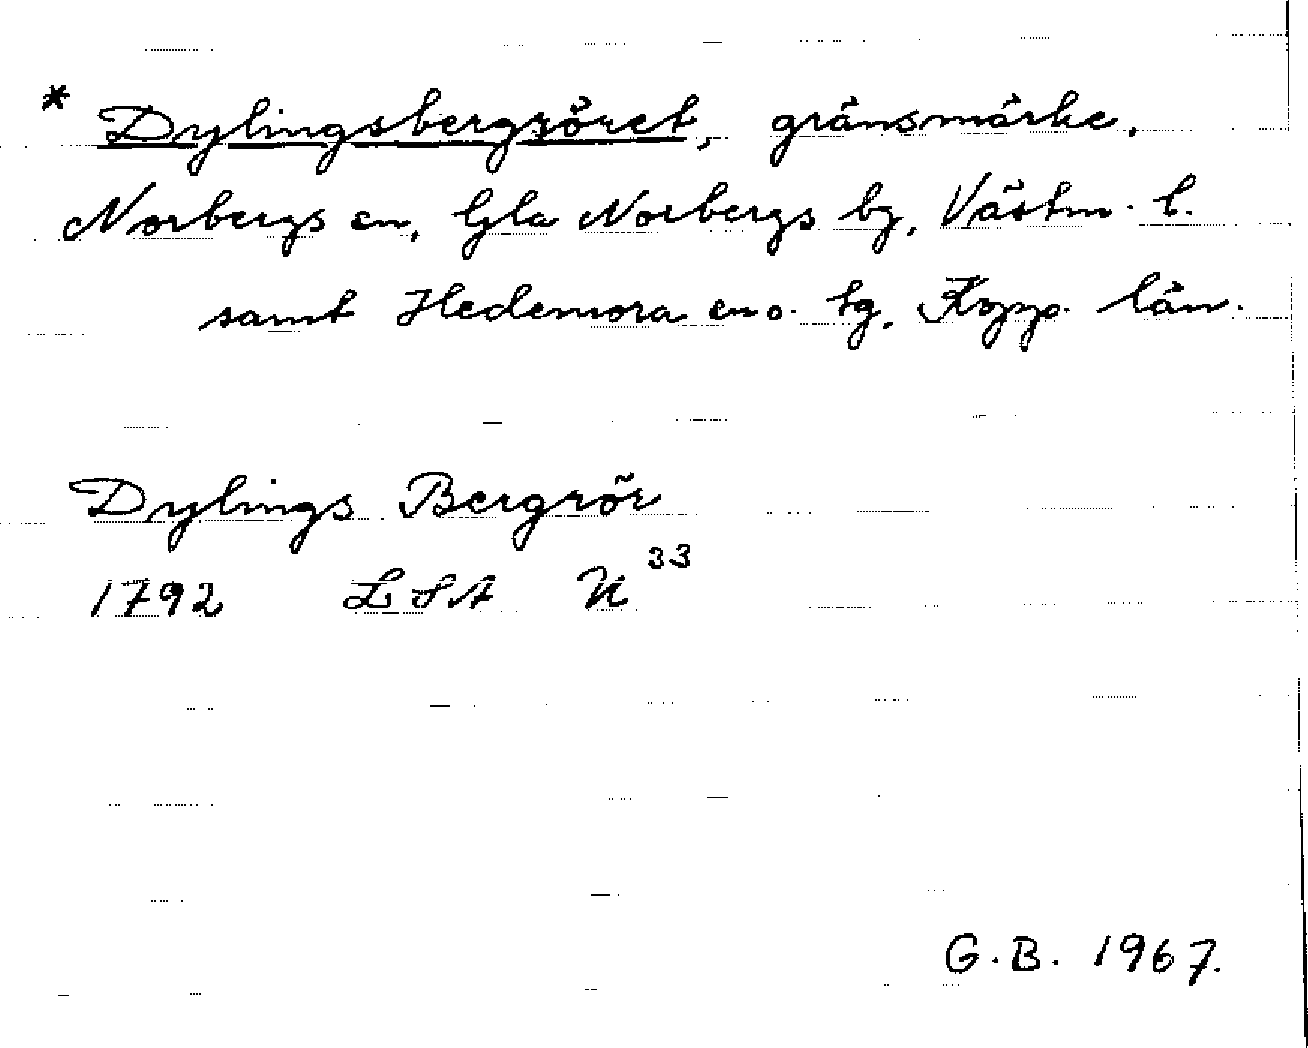 * Dylingsbergsröret, gränsmärke,
Norbergs sn, Gla Norbergs bg, Västm. l.
samt Hedemora sn o. tg, Kopp. län.
Dylings Bergrör
1792 LSA U 33
G.B. 1967.